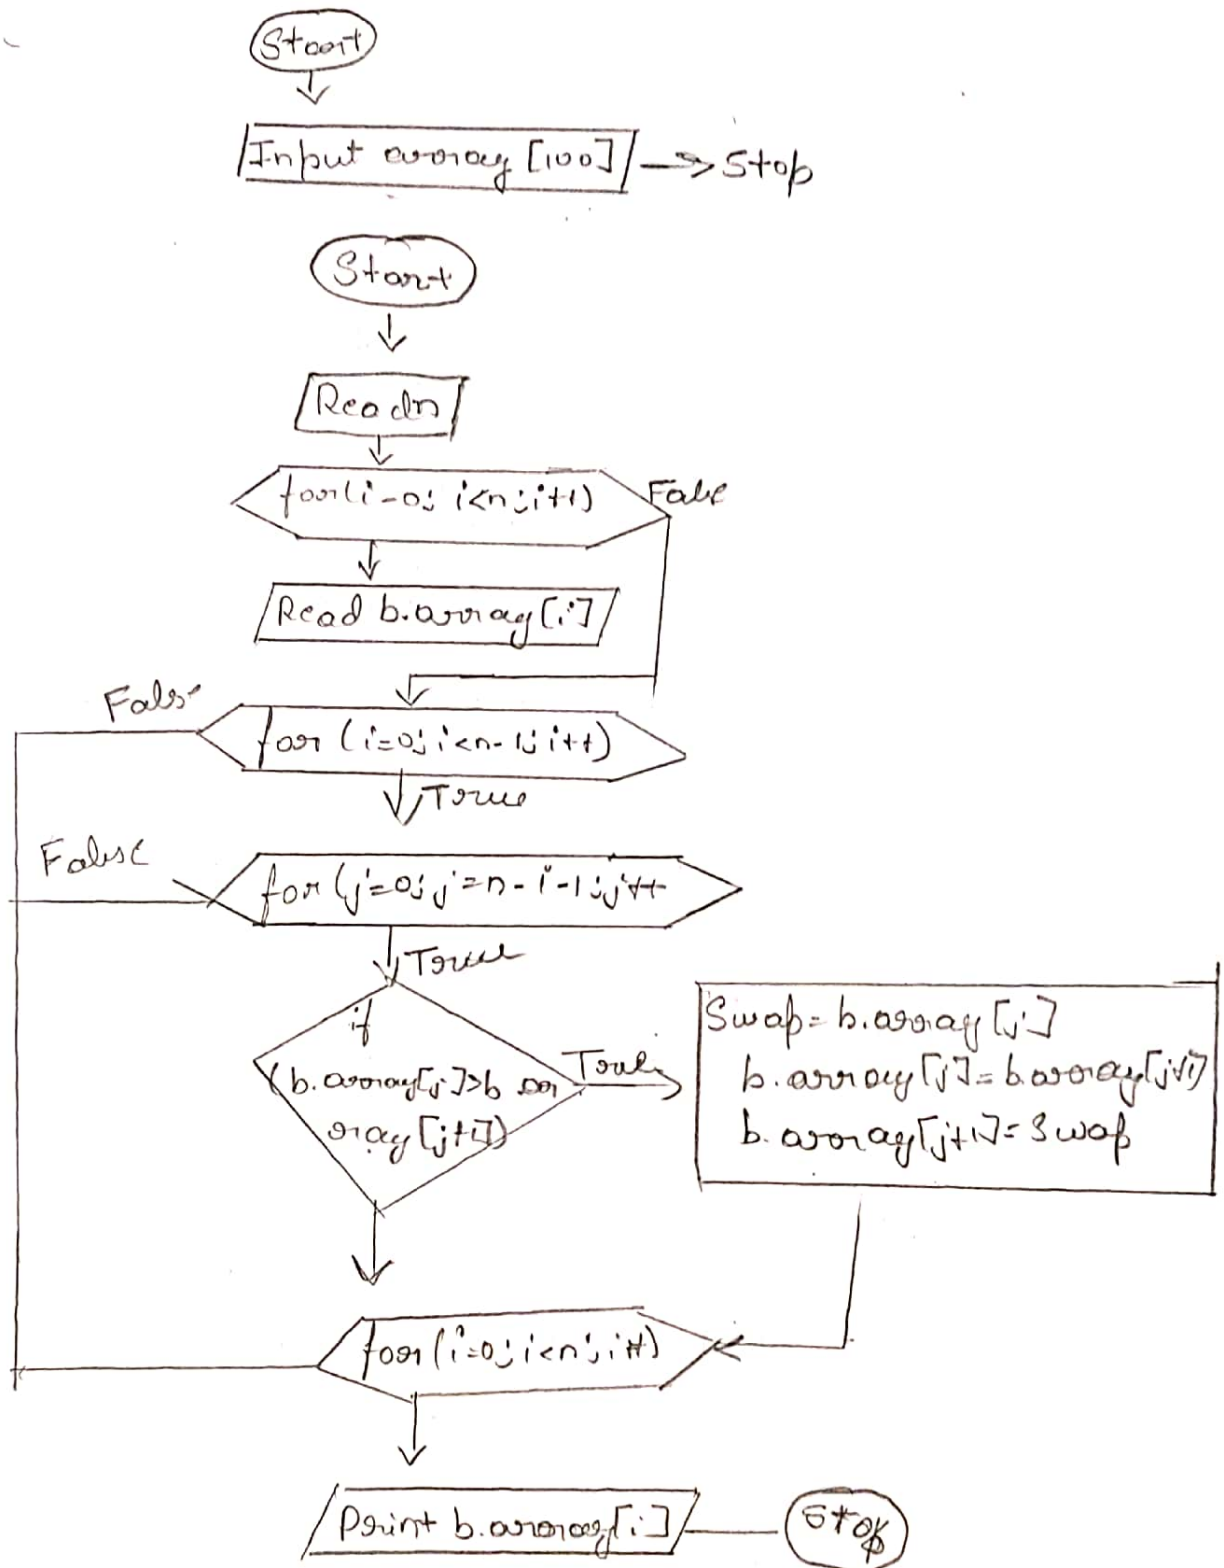 Start
Input array [100]
Stop
Start
Read n
for(i-0; i<n; i++)
False
Read b.array[i]
False
for (i=0; i<n-1; i++)
True
False
for (j=0; j=n-i-1; j++
True
if
(b.array[j]>b ar
ray [j+1])
True
Swap= b.array [j]
b.array[j]=b.array[j+1]
b.array[j+1]= Swap
for (i=0; i<n; i++)
Print b.array[i]
Stop